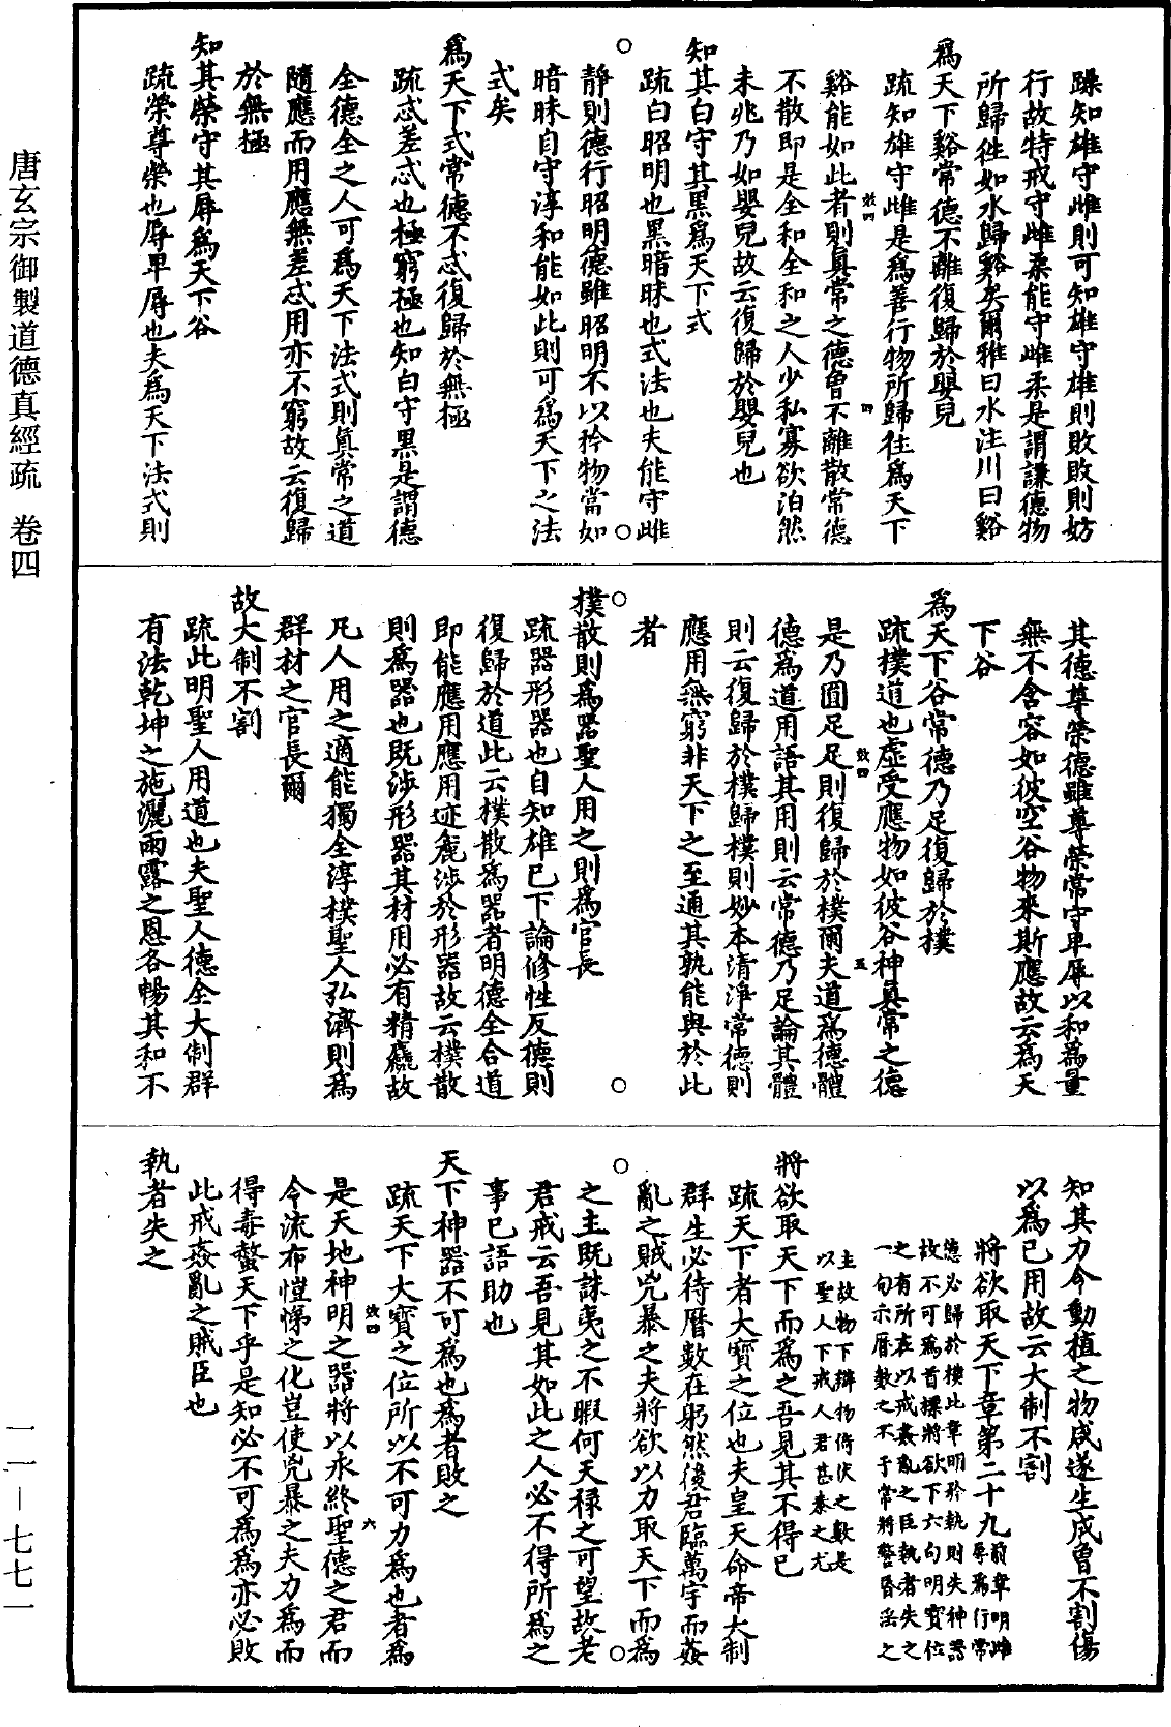 唐玄宗御製道德真經疏 卷四
一一—七七一
躁知雄守雌則可知雄守雄則敗敗則妨
行故特戒守雌柔能守雌柔是謂謙德物
所歸徃如水歸谿矣爾雅曰水注川曰谿
為天下谿常德不離復歸於嬰兒
疏知雄守雌是為善行物所歸往為天下
谿能如此者則真常之德曾不離散常德
不散即是全和全和之人少私寡欲泊然
未兆乃如嬰兒故云復歸於嬰兒也
知其白守其黑為天下式
疏白昭明也黑暗昧也式法也夫能守雌
靜則德行昭明德雖昭明不以矜物當如
暗昧自守淳和能如此則可為天下之法
式矣
為天下式常德不忒復歸於無極
疏忒差忒也極窮極也知白守黑是謂德
全德全之人可為天下法式則真常之道
隨應而用應無差忒用亦不窮故云復歸
於無極
知其榮守其辱為天下谷
疏榮尊榮也辱卑辱也夫為天下法式則
其德尊榮德雖尊榮常守卑辱以和為量
無不含容如彼空谷物來斯應故云為天
下谷
為天下谷常德乃足復歸於樸
疏樸道也虛受應物如彼谷神真常之德
是乃圓足足則復歸於樸爾夫道為德體
德為道用語其用則云常德乃足論其體
則云復歸於樸歸樸則妙本清淨常德則
應用無窮非天下之至通其孰能與於此
者
樸散則為器聖人用之則為官長
疏器形器也自知雄已下論修性反德則
復歸於道此云樸散為器者明德全合道
即能應用應用迹麁涉於形器故云樸散
則為器也既涉形器其材用必有精麁故
凡人用之適能獨全淳樸聖人弘濟則為
群材之官長爾
故大制不割
疏此明聖人用道也夫聖人德全大制群
有法乾坤之施灑雨露之恩各暢其和不
知其力令動植之物咸遂生成曾不割傷
以為己用故云大制不割
將欲取天下章第二十九前章明雌辱為行常
德必歸於樸此章明矜執則失神器
故不可為首標將欲下六句明寶位
之有所在以戒姦亂之臣執者失之
一句示曆數之不于常將警昏淫之
主故物下辯物倚伏之數是
以聖人下戒人君甚泰之尤
將欲取天下而為之吾見其不得已
疏天下者大寶之位也夫皇天命帝大制
群生必待曆數在躬然後君臨萬宇而姦
亂之賊兇暴之夫將欲以力取天下而為
之主既誅夷之不暇何天祿之可望故老
君戒云吾見其如此之人必不得所為之
事已語助也
天下神器不可為也為者敗之
疏天下大寶之位所以不可力為也者為
是天地神明之器將以永終聖德之君而
令流布愷悌之化豈使兇暴之夫力為而
得毒螫天下乎是知必不可為為亦必敗
此戒姦亂之賊臣也
執者失之